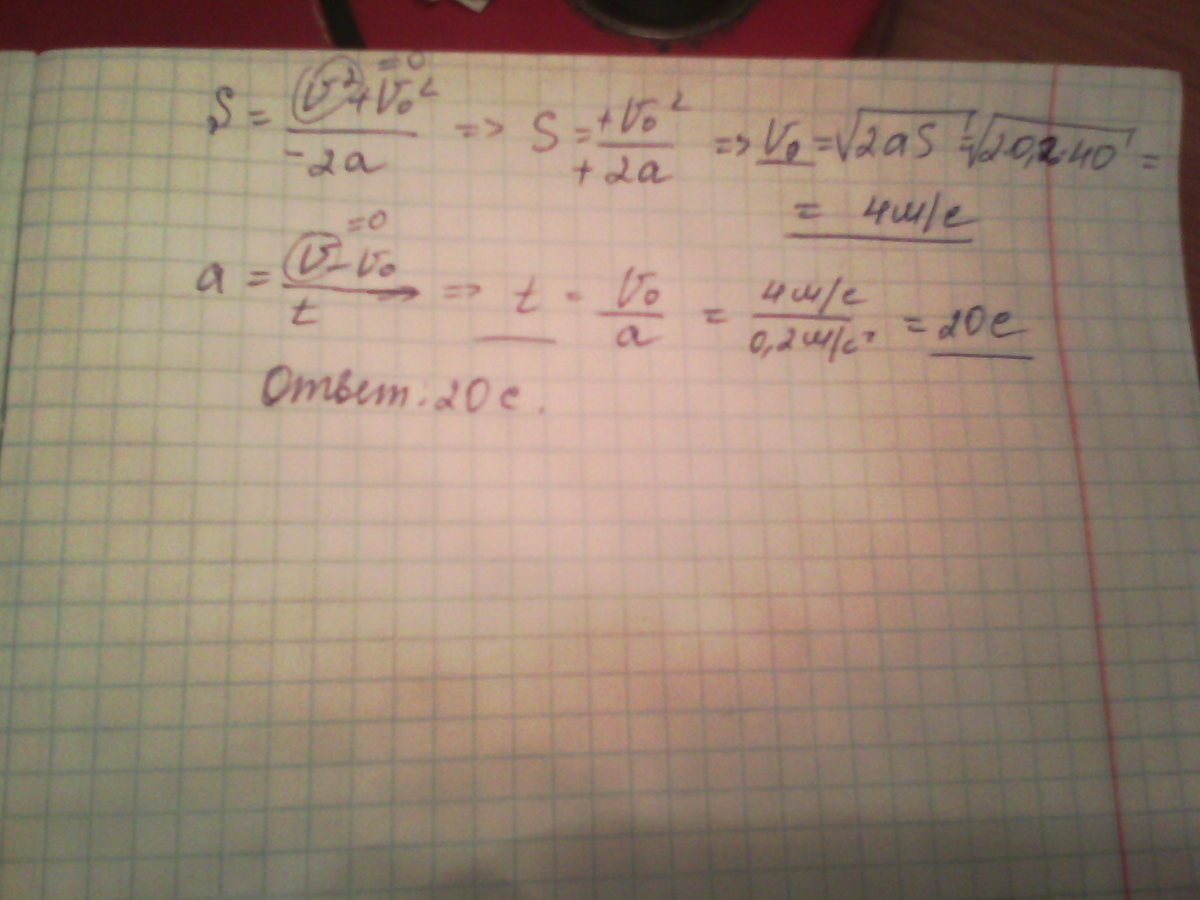 = 0
S = (v² + v₀²) / (-2a) => S = +v₀² / +2a => v₀ = √2aS = √2 0,2·40 =
= 4 м/с
= 0
a = (v - v₀) / t => t = v₀ / a = 4 м/с / 0,2 м/с² = 20 с
Ответ: 20 с.